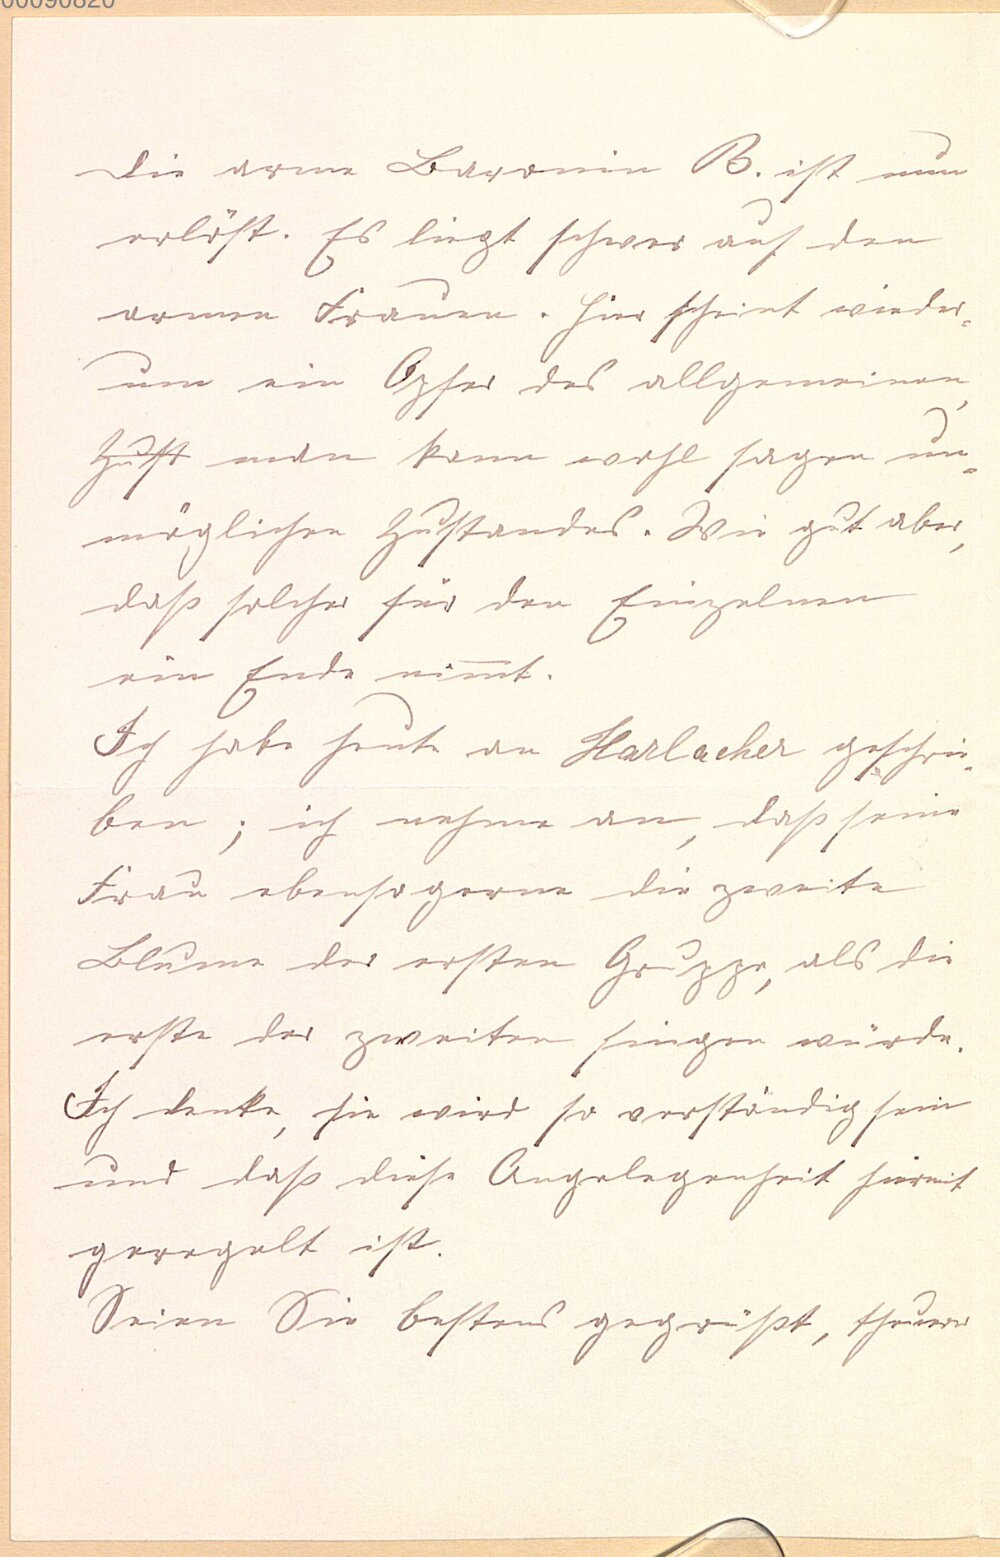 00090820
Die arme Baronin B. ist nun
erlöst. Es liegt schwer auf den
armen Frauen. Hier scheint wieder-
um ein Opfer des allgemeinen,
Zust man kann wohl sagen un-
möglichen Zustandes. Wie gut aber,
daß solcher für den Einzelnen
ein Ende nimmt.
Ich habe heute an Harlacher geschrie-
ben; ich nehme an, daß seine
Frau ebensogerne die zweite
Blume der ersten Gruppe, als die
erste der zweiten singen würde.
Ich denke, sie wird so verständig sein
und daß diese Angelegenheit hiermit
geregelt ist.
Seien Sie bestens gegrüßt, theurer